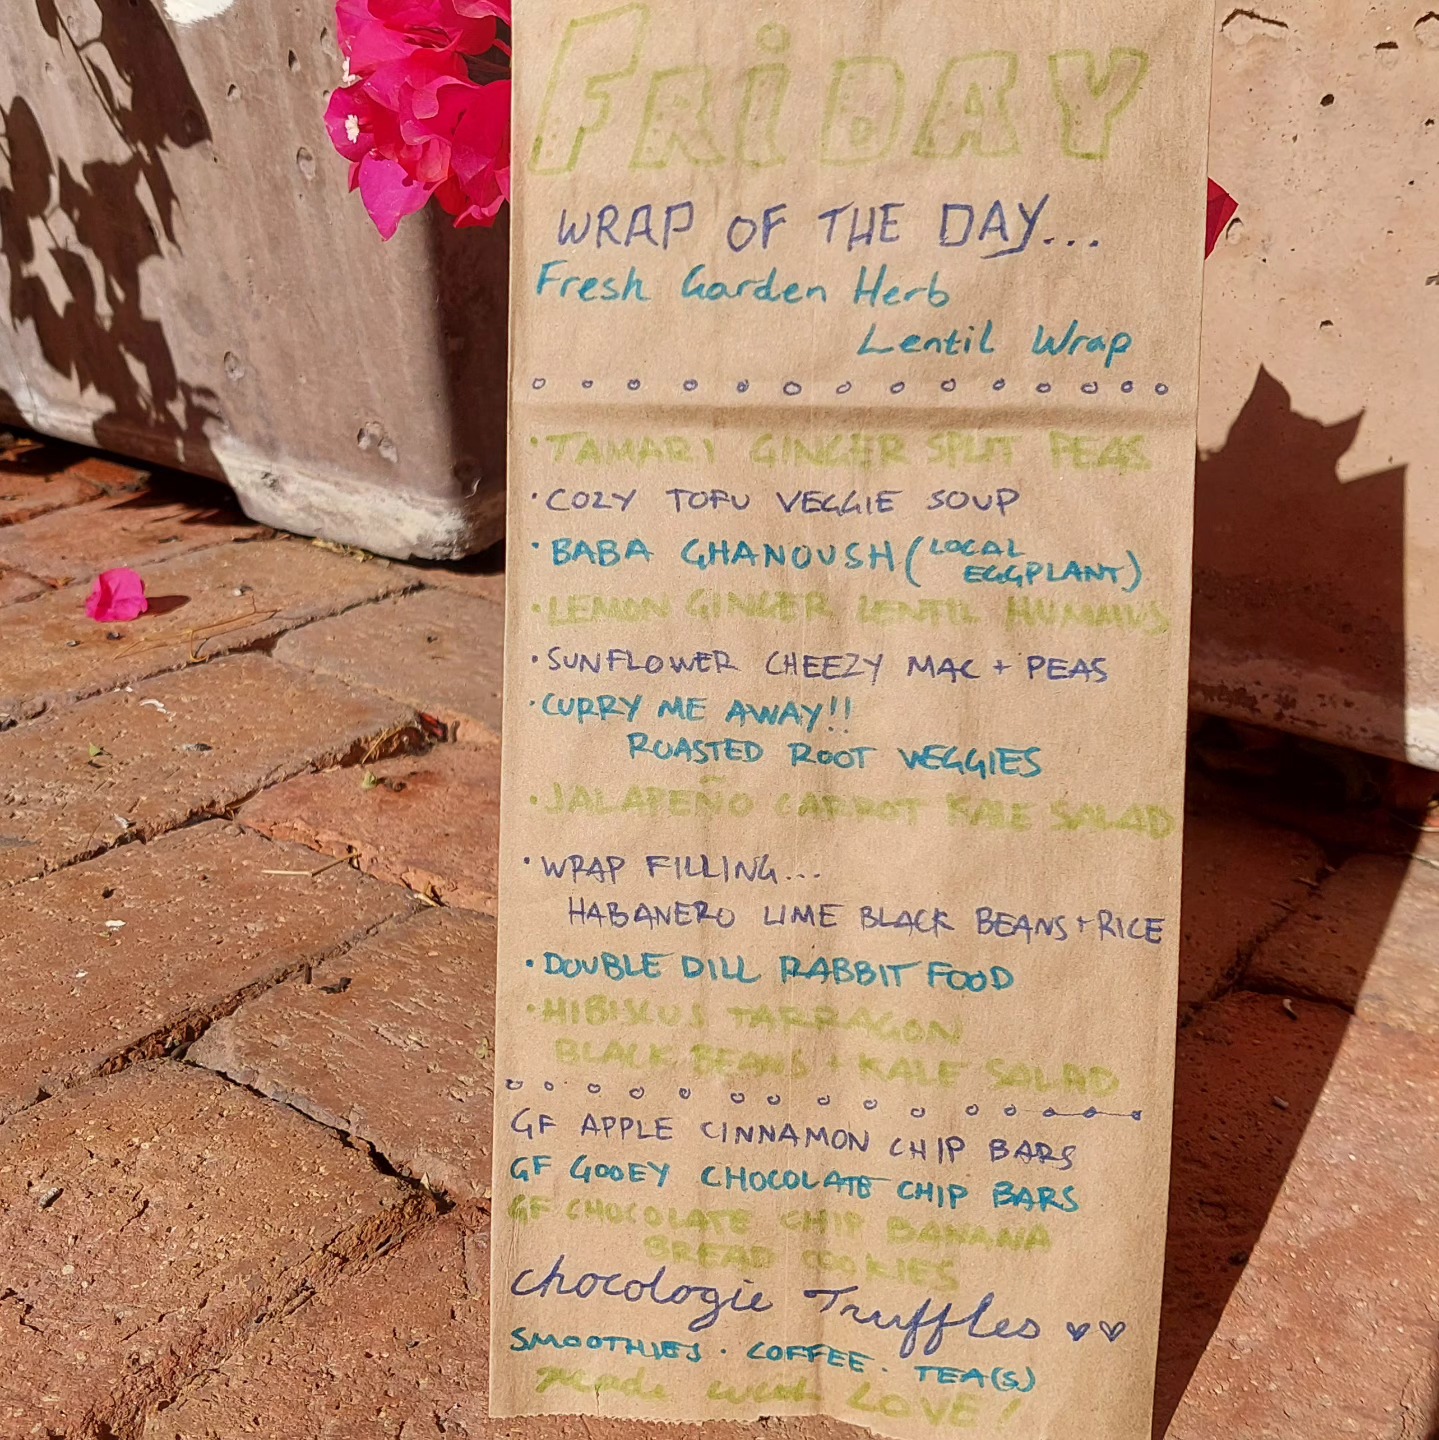 FRiDAY
WRAP OF THE DAY...
Fresh Garden Herb
Lentil Wrap
• TAMARI GINGER SPLIT PEAS
• COZY TOFU VEGGIE SOUP
• BABA GHANOUSH (LOCAL
EGGPLANT)
• LEMON GINGER LENTIL HUMMUS
• SUNFLOWER CHEEZY MAC + PEAS
• CURRY ME AWAY!!
ROASTED ROOT VEGGIES
• JALAPEÑO CARROT KALE SALAD
• WRAP FILLING...
HABANERO LIME BLACK BEANS + RICE
• DOUBLE DILL RABBIT FOOD
• HIBISCUS TARRAGON
BLACK BEANS + KALE SALAD
GF APPLE CINNAMON CHIP BARS
GF GOOEY CHOCOLATE CHIP BARS
GF CHOCOLATE CHIP BANANA
BREAD COOKIES
chocologie Truffles ♡♡
SMOOTHIES · COFFEE · TEA(S)
made with LOVE!